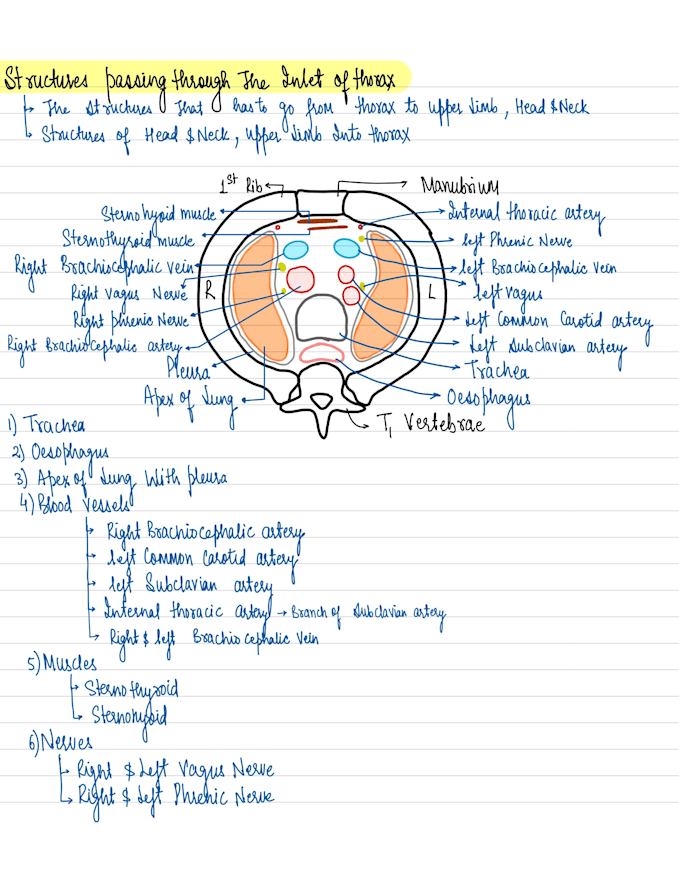 Structures passing through The Inlet of thorax
The structures that has to go from thorax to upper limb, Head & Neck
Structures of Head & Neck, upper limb Into thorax
1st Rib
Manubrium
Sternohyoid muscle
Internal thoracic artery
Sternothyroid muscle
left Phrenic Nerve
Right Brachiocephalic vein
left Brachiocephalic vein
Right vagus Nerve
R
L
left vagus
Right phrenic Nerve
Left Common Carotid artery
Right Brachiocephalic artery
Left Subclavian artery
Pleura
Trachea
Apex of lung
Oesophagus
T1 Vertebrae
1) Trachea
2) Oesophagus
3) Apex of lung With pleura
4) Blood vessels
Right Brachiocephalic artery
left Common Carotid artery
left Subclavian artery
Internal thoracic artery → Branch of Subclavian artery
Right & left Brachiocephalic Vein
5) Muscles
Sternothyroid
Sternohyoid
6) Nerves
Right & Left Vagus Nerve
Right & left Phrenic Nerve